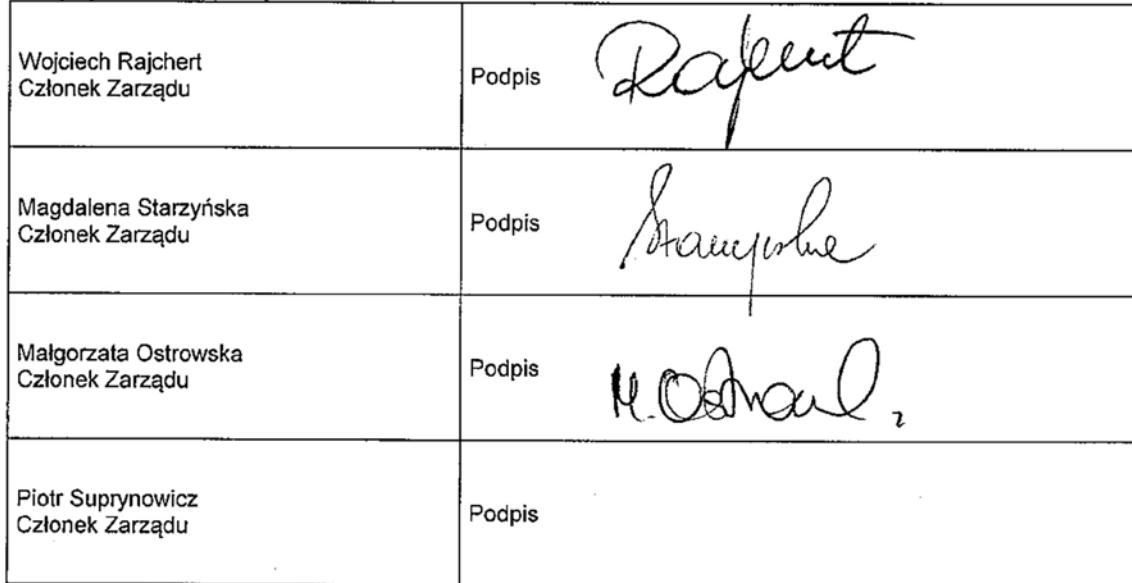 Wojciech Rajchert
Członek Zarządu
Podpis
Magdalena Starzyńska
Członek Zarządu
Podpis
Małgorzata Ostrowska
Członek Zarządu
Podpis
M.
Piotr Suprynowicz
Członek Zarządu
Podpis